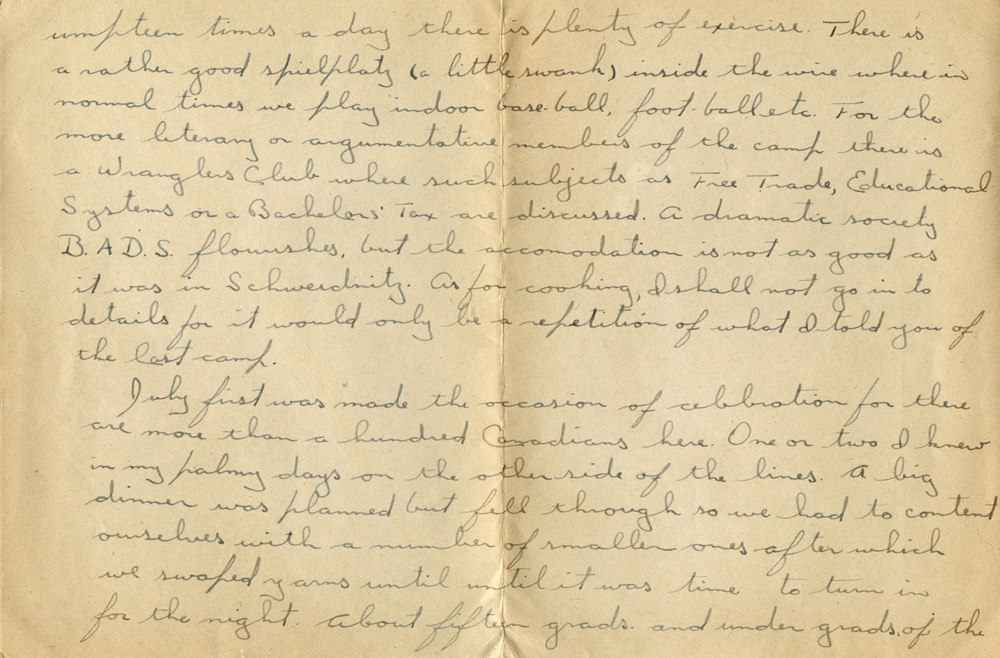 umpteen times a day there is plenty of exercise. There is
a rather good spielplatz (a little swank) inside the wire where in
normal times we play indoor base-ball, foot-ball etc. For the
more literary or argumentative members of the camp there is
a Wranglers Club where such subjects as Free Trade, Educational
Systems or a Bachelors' Tax are discussed. A dramatic society
B.A.D.S. flourishes, but the accomodation is not as good as
it was in Schweidnitz. As for cooking, I shall not go in to
details for it would only be a repetition of what I told you of
the last camp.
July first was made the occasion of celebration for there
are more than a hundred Canadians here. One or two I knew
in my palmy days on the other side of the lines. A big
dinner was planned but fell through so we had to content
ourselves with a number of smaller ones after which
we swaped yarns until until it was time to turn in
for the night. About fifteen grads. and under grads. of the